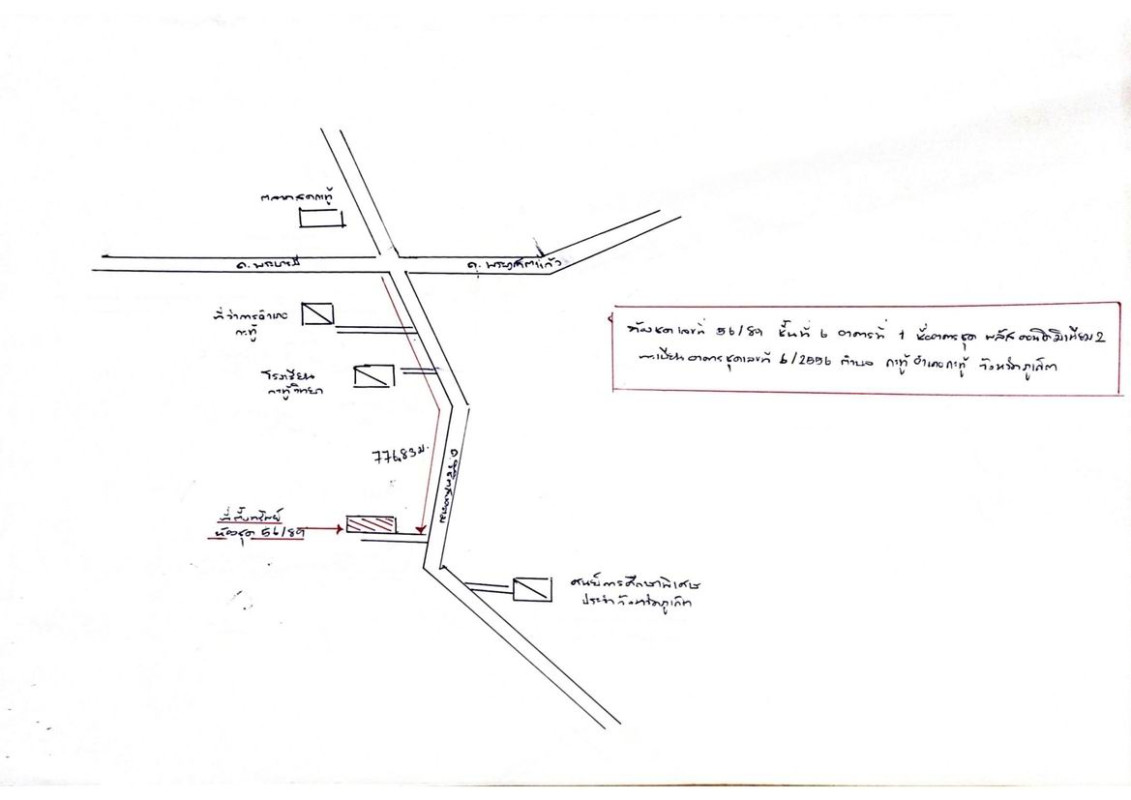 ตลาดสดกะทู้
ถ. พระบารมี
ถ. พระภูเก็ตแก้ว
ที่ว่าการอำเภอ
กะทู้
โรงเรียน
กะทู้วิทยา
ห้องชุดเลขที่ 56/89 ชั้นที่ 6 อาคารที่ 1 ชื่ออาคารชุด พลัสคอนโดมิเนียม 2
ทะเบียนอาคารชุดเลขที่ 6/2556 ตำบล กะทู้ อำเภอกะทู้ จังหวัดภูเก็ต
ถ.วิชิตสงคราม
ที่ตั้งทรัพย์
ห้องชุด 56/89
ศูนย์การศึกษาพิเศษ
ประจำจังหวัดภูเก็ต